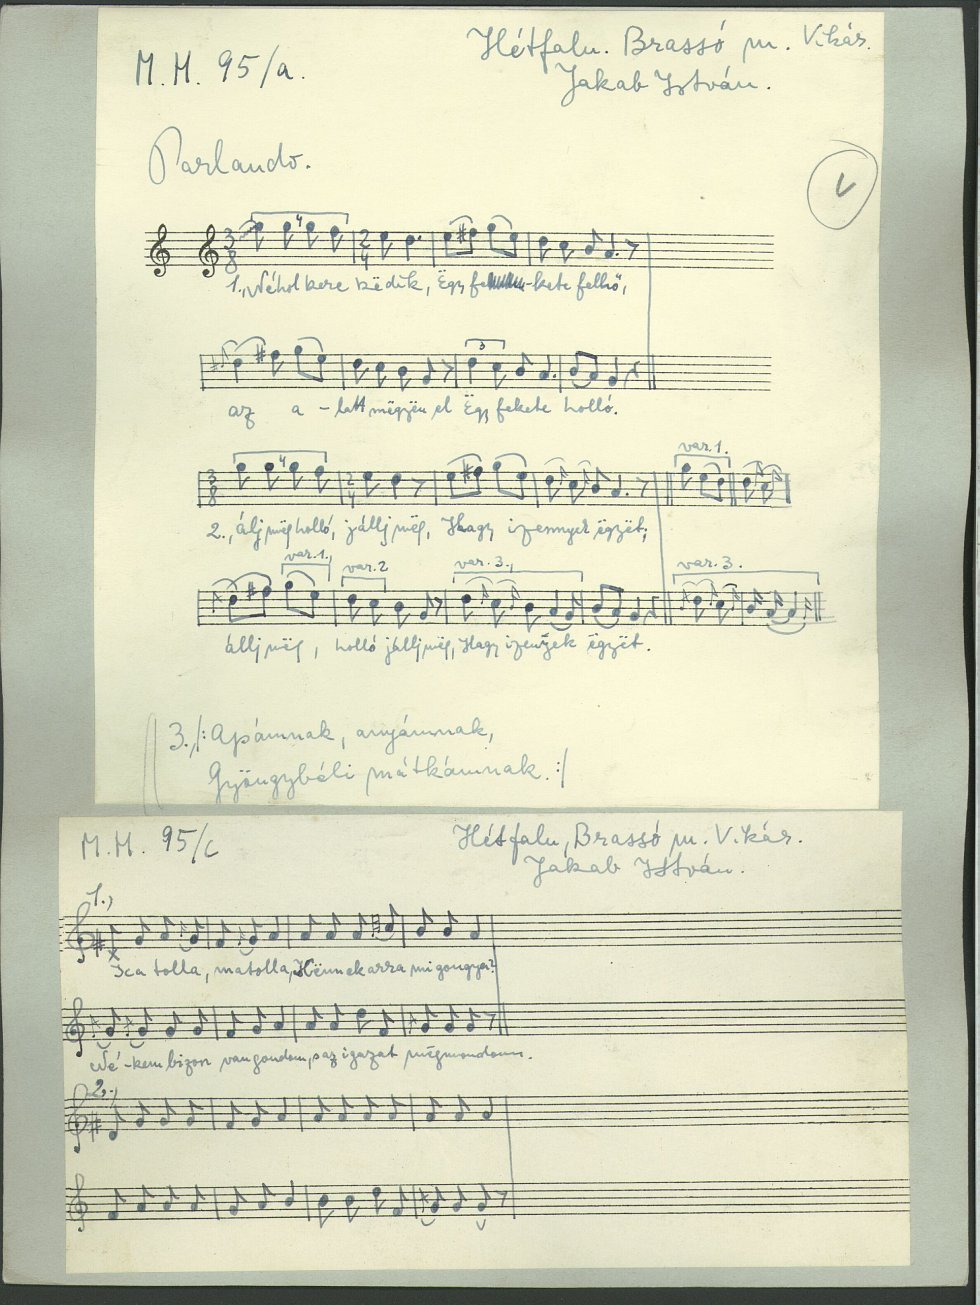 M. M. 95/a.
Hétfalu. Brassó m. Vikár.
Jakab István.
Parlando.
4
3/8 2/4
1., Néhol kere këdik, Ëgy fe -kete felhő,
3
az a - latt mëgyën el Ëgy fekete holló.
4
3/8 2/4
var. 1.
2., álj mëg holló, jállj mëg, Hagy izennyek ëgyët;
var. 1., var. 2 var. 3., var. 3.
állj mëg, holló jállj mëg, Hagy izenyek ëgyët.
3., /: Apámnak, anyámnak,
Gyöngybéli mátkámnak. :/
M. M. 95/c
Hétfalu, Brassó m. Vikár.
Jakab István.
1.,
Ica tolla, matolla, Kënnek arra mi gongya?
Né - kem bizon van gondom, s az igazat mëgmondom.
2.,